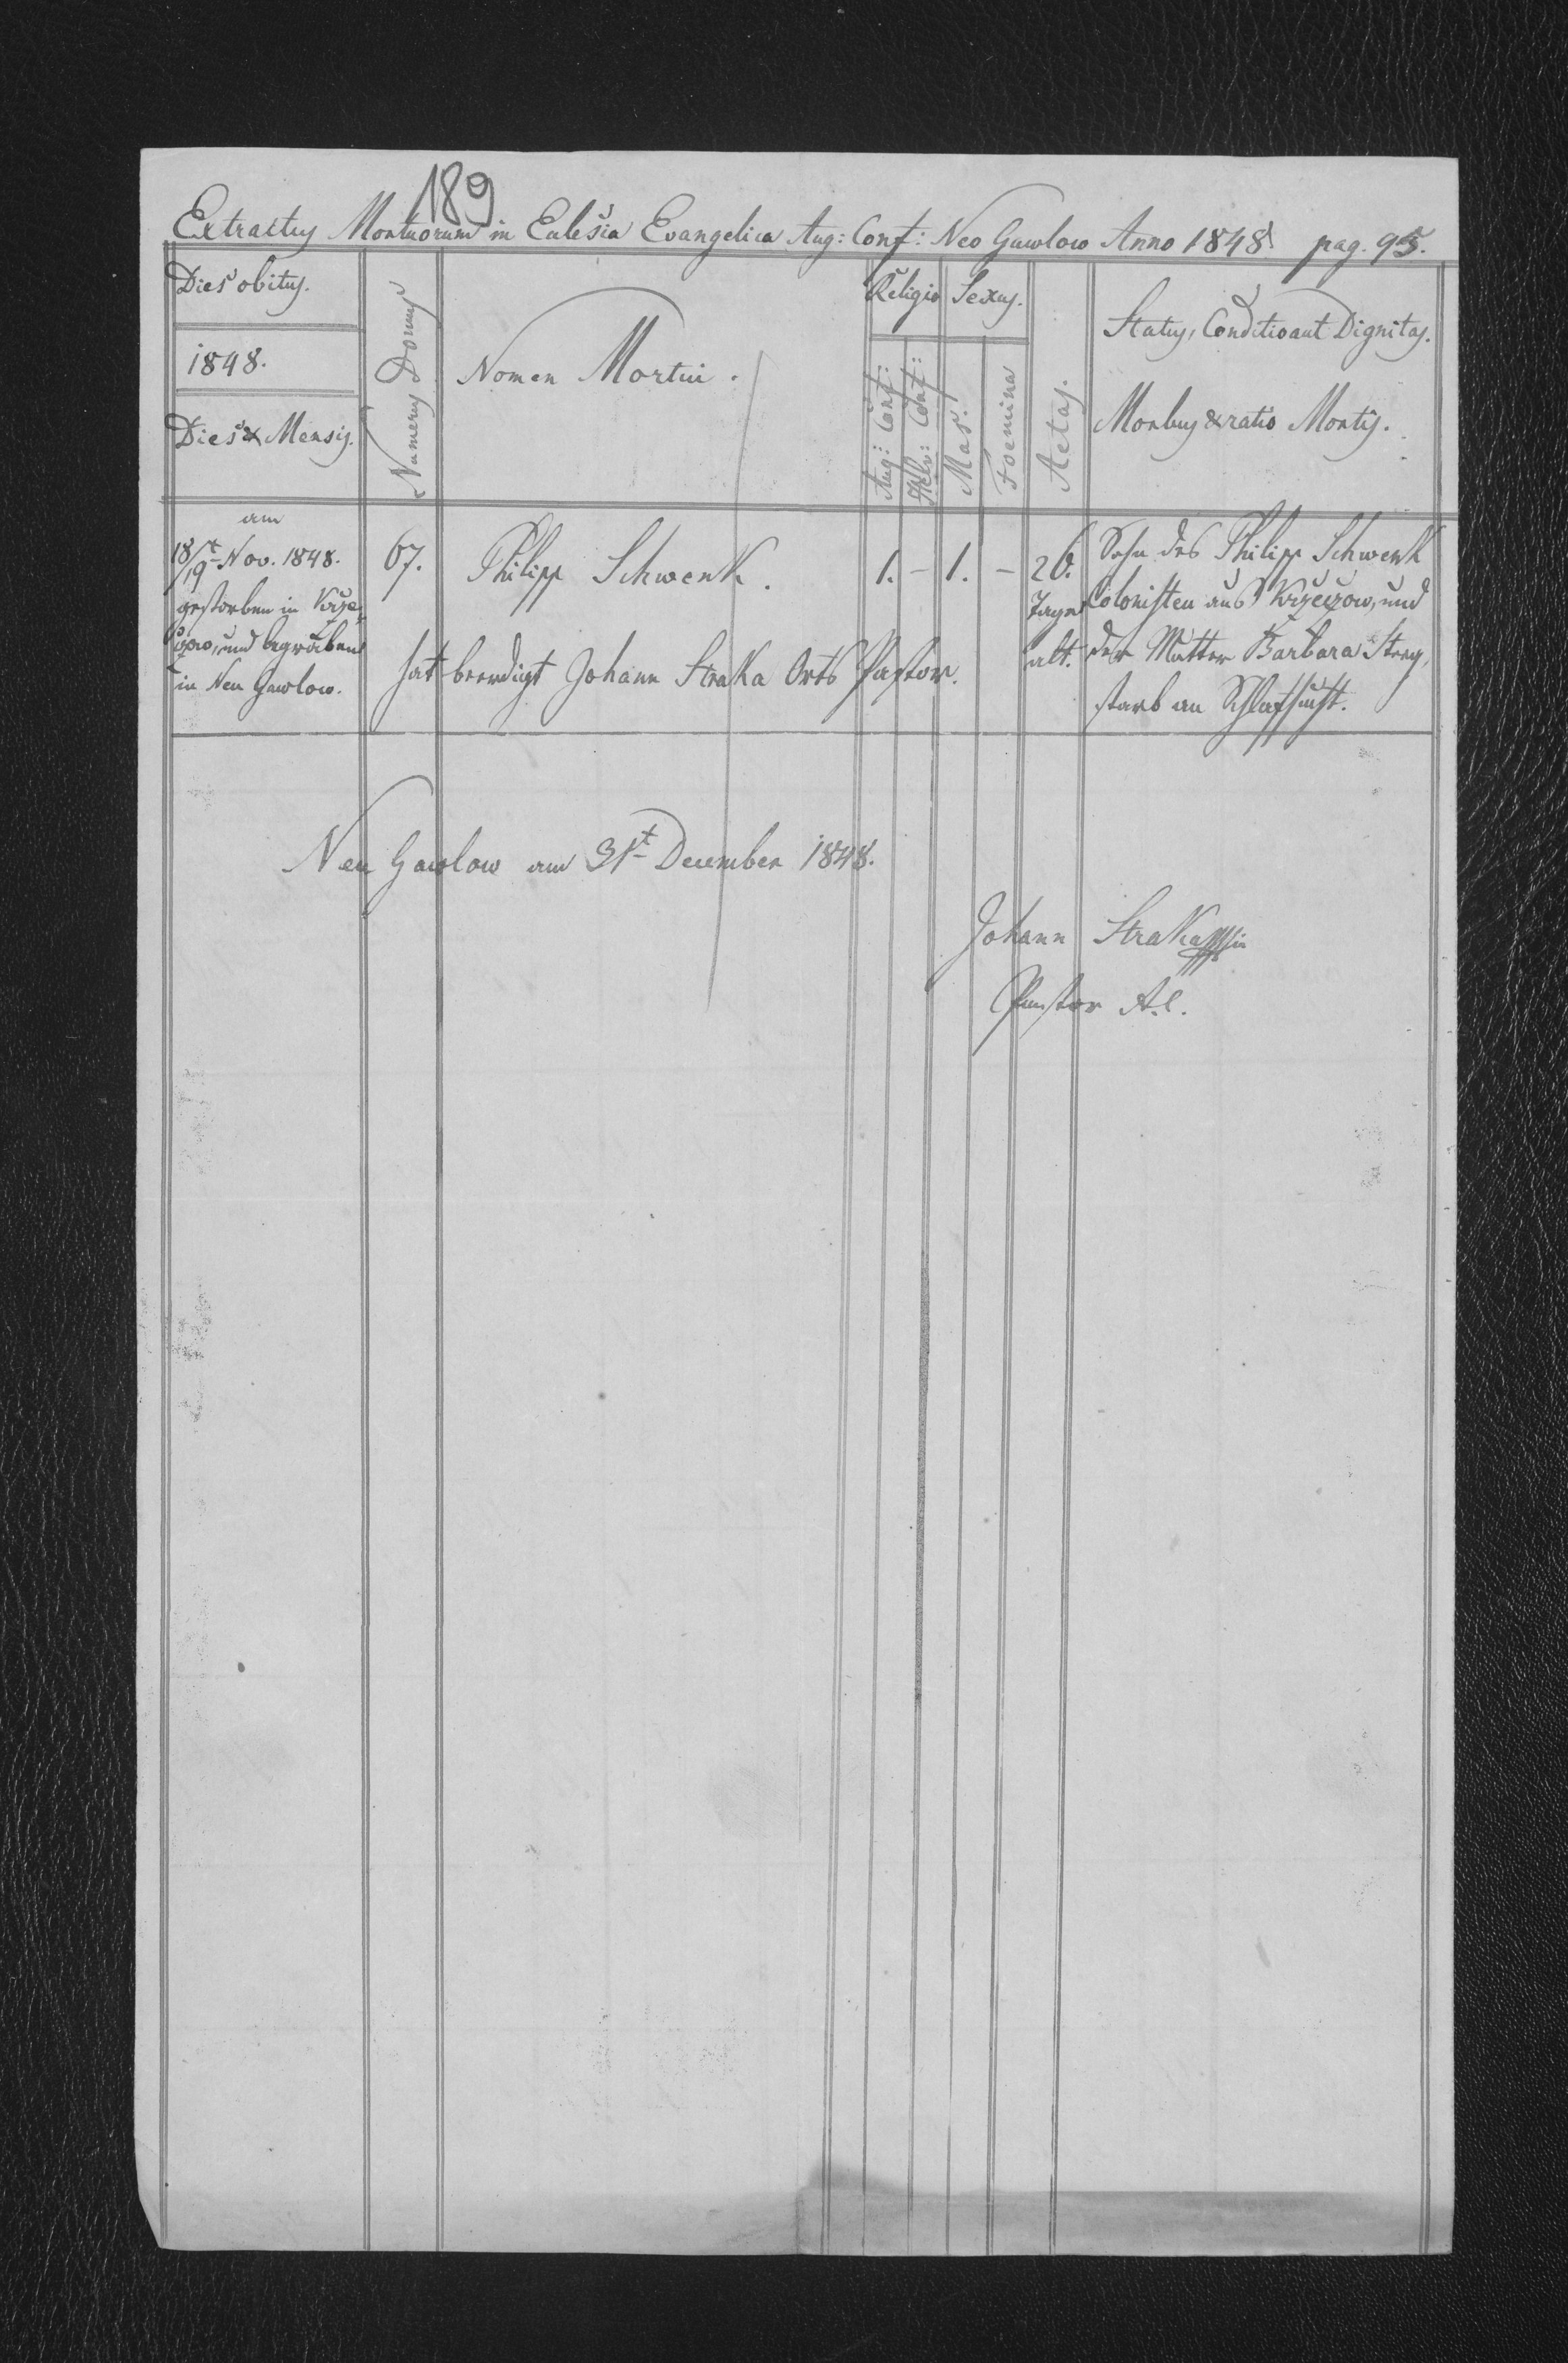 189
Extractus Mortuorum in Eclesia Evangelica Aug: Conf: Neo Gawlow Anno 1848 pag. 95.
Dies obitus.
1848.
Dies & Mensis.
Numerus Domus
Nomen Mortui.
Religio
Aug: Conf:
Helv: Conf:
Sexus.
Mas.
Foemina
Aetas.
Status, Conditio aut Dignitas.
Morbus & ratio Mortis.
am
18/19t Nov. 1848.
gestorben in Krze-
czow, und begraben
in Neu Gawlow.
67.
Philipp Schwenk.
hat beerdigt Johann Straka Orts Pastor.
1. - 1. -
26.
Tage
alt.
Sohn des Philipp Schwenk
Colonisten aus Krzeczow, und
der Mutter Barbara
starb an Schlafsucht.
Neu Gawlow am 31t December 1848.
Johann Straka
Pastor A.C.